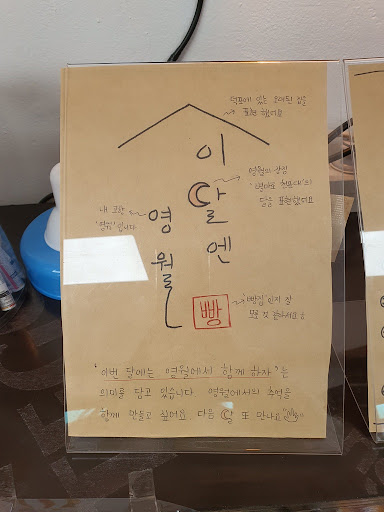 덕포에 있는 오래된 집을
표현 했어요
이 달엔
영월의 상징
'별마로 천문대'의
달을 표현했어요
내 고향
'영월' 입니다
영월
빵
빵집 인지 잘
모를 것 같아서요 :)
'이번 달에는 영월에서 함께 하자' 는
의미를 담고 있습니다 영월에서의 추억을
함께 만들고 싶어요 다음 달 또 만나요